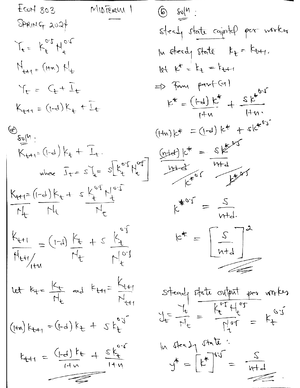 ECON 803 MIDTERM 1
SPRING 2024
Y_t = K_t^0.5 N_t^0.5
N_t+1 = (1+n) N_t
Y_t = C_t + I_t
K_t+1 = (1-d) K_t + I_t
(a) Soln:
K_t+1 = (1-d) K_t + I_t
where I_t = sY_t = s[K_t^0.5 N_t^0.5]
K_t+1/N_t = (1-d) K_t/N_t + s K_t^0.5 N_t^0.5/N_t
K_t+1/(N_t+1/1+n) = (1-d) K_t/N_t + s K_t^0.5/N_t^0.5
let k_t = K_t/N_t and k_t+1 = K_t+1/N_t+1
(1+n) k_t+1 = (1-d) k_t + s k_t^0.5
k_t+1 = (1-d) k_t/1+n + s k_t^0.5/1+n
(b) Soln:
steady state capital per worker
In steady state k_t = k_t+1
let k* = k_t = k_t+1
⇒ From part (a)
k* = (1-d) k*/1+n + s k*^0.5/1+n
(1+n) k* = (1-d) k* + s k*^0.5
(n+d) k* = s k*^0.5
k*^0.5 = s/n+d
k* = [s/n+d]^2
steady state output per worker
y_t = Y_t/N_t = K_t^0.5 N_t^0.5/N_t = k_t^0.5
In steady state:
y* = [k*]^0.5 = s/n+d